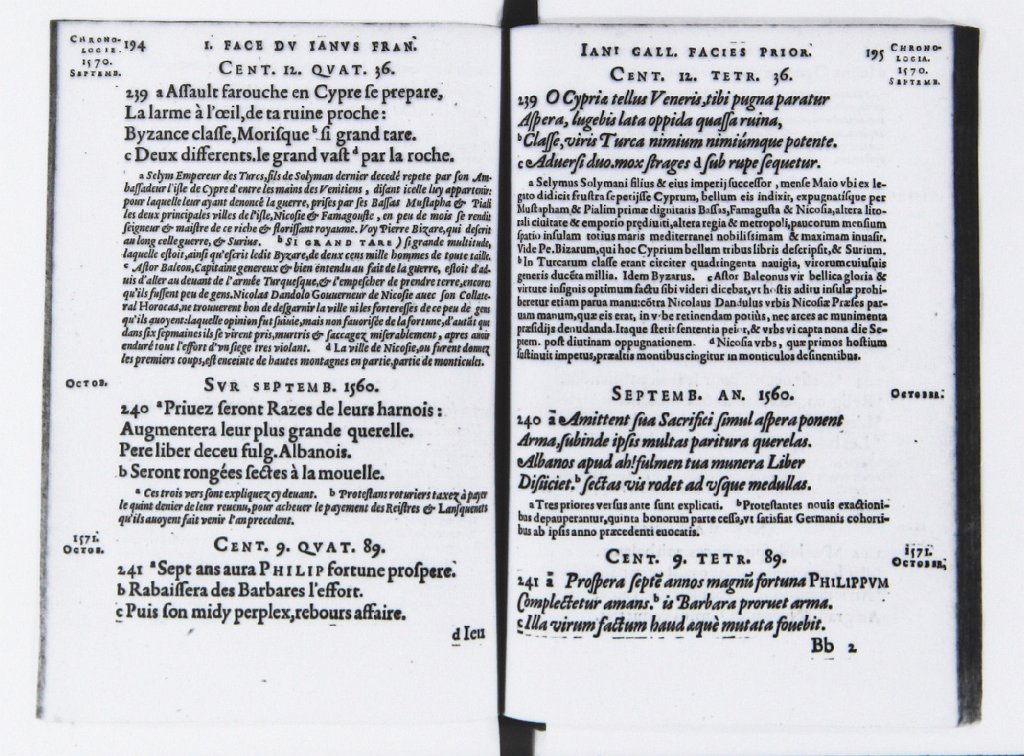 CHRONO-
LOGIE.
194
I. FACE DV IANVS FRAN.
1570.
SEPTEMB.
CENT. 12. QVAT. 36.
239 a Assault farouche en Cypre se prepare,
La larme à l'œil, de ta ruine proche:
Byzance classe, Morisque b si grand tare.
c Deux differents. le grand vast d par la roche.
a Selym Empereur des Turcs, fils de Solyman dernier decedé repete par son Am-
bassadeur l'isle de Cypre d'entre les mains des Venitiens, disant icelle luy appartenir:
pour laquelle leur ayant denoncé la guerre, prises par ses Bassas Mustapha & Piali
les deux principales villes de l'isle, Nicosie & Famagouste, en peu de mois se rendit
seigneur & maistre de ce riche & florissant royaume. Voy Pierre Bizare, qui descrit
au long celle guerre, & Surius. b SI GRAND TARE) si grande multitude,
laquelle estoit, ainsi qu'escrit ledit Byzare, de deux cens mille hommes de toute taille.
c Astor Baleon, Capitaine genereux & bien entendu au fait de la guerre, estoit d'ad-
uis d'aller au deuant de l'armée Turquesque, & l'empescher de prendre terre, encores
qu'ils fussent peu de gens. Nicolas Dandolo Gouuerneur de Nicosie auec son Collate-
ral Horocas, ne trouuerent bon de desgarnir la ville ni les forteresses de ce peu de gens
qu'ils auoyent: laquelle opinion fut suiuie, mais non fauorisée de la fortune, d'autãt que
dans six sepmaines ils se virent pris, murtris & saccagez miserablement, apres auoir
enduré tout l'effort d'vn siege tres violant. d La ville de Nicosie, ou furent donnez
les premiers coups, est enceinte de hautes montagnes en partie, partie de monticules.
OCTOB.
SVR SEPTEMB. 1560.
240 a Priuez seront Razes de leurs harnois:
Augmentera leur plus grande querelle.
Pere liber deceu fulg. Albanois.
b Seront rongées sectes à la mouelle.
a Ces trois vers sont expliquez cy deuant. b Protestans roturiers taxez à payer
le quint denier de leur reuenu, pour acheuer le payement des Reistres & Lansquenets
qu'ils auoyent fait venir l'an precedent.
1571.
OCTOB.
CENT. 9. QVAT. 89.
241 a Sept ans aura PHILIP fortune prospere.
b Rabaissera des Barbares l'effort.
c Puis son midy perplex, rebours affaire.
d Ieu
IANI GALL. FACIES PRIOR.
195
CHRONO-
LOGIA.
1570.
SEPTEMB.
CENT. 12. TETR. 36.
239 O Cypria tellus Veneris, tibi pugna paratur
Aspera, lugebis lata oppida quassa ruina,
b Classe, viris Turca nimium nimiúmque potente.
c Aduersi duo. mox strages d sub rupe sequetur.
a Selymus Solymani filius & eius imperij successor, mense Maio vbi ex le-
gato didicit frustra se petijsse Cyprum, bellum eis indixit, expugnatisque per
Mustapham & Pialim primæ dignitatis Bassas, Famagusta & Nicosia, altera lito-
rali ciuitate & emporio prędiuiti, altera regia & metropoli, paucorum mensium
spatio insulam totius maris mediterranei nobilissimam & maximam inuasit.
Vide Pe. Bizarum, qui hoc Cyprium bellum tribus libris descripsit, & Surium.
b In Turcarum classe erant circiter quadringenta nauigia, virorum cuiusuis
generis ducẽta millia. Idem Byzarus. c Astor Baleonus vir bellica gloria &
virtute insignis optimum factu sibi videri dicebat, vt hostis aditu insulæ prohi-
beretur etiam parua manu: cõtra Nicolaus Dandulus vrbis Nicosiæ Præses par-
uam manum, quæ eis erat, in vrbe retinendam potiùs, nec arces ac munimenta
præsidijs denudanda. Itaque stetit sententia peior, & vrbs vi capta nona die Se-
ptem. post diutinam oppugnationem. d Nicosia vrbs, quæ primos hostium
sustinuit impetus, præaltis montibus cingitur in monticulos desinentibus.
SEPTEMB. AN. 1560.
OCTOBRI.
240 a Amittent sua Sacrifici simul aspera ponent
Arma, subinde ipsis multas paritura querelas.
Albanos apud ah! fulmen tua munera Liber
Disiiciet. b sectas vis rodet ad vsque medullas.
a Tres priores versus ante sunt explicati. b Protestantes nouis exactioni-
bus depauperantur, quinta bonorum parte cessa, vt satisfiat Germanis cohorti-
bus ab ipsis anno præcedenti euocatis.
1571.
OCTOBRI,
CENT. 9. TETR. 89.
241 a Prospera septẽ annos magnũ fortuna PHILIPPVM
Complectetur amans. b is Barbara proruet arma.
c Illa virum factum haud æquè mutata fouebit.
Bb 2